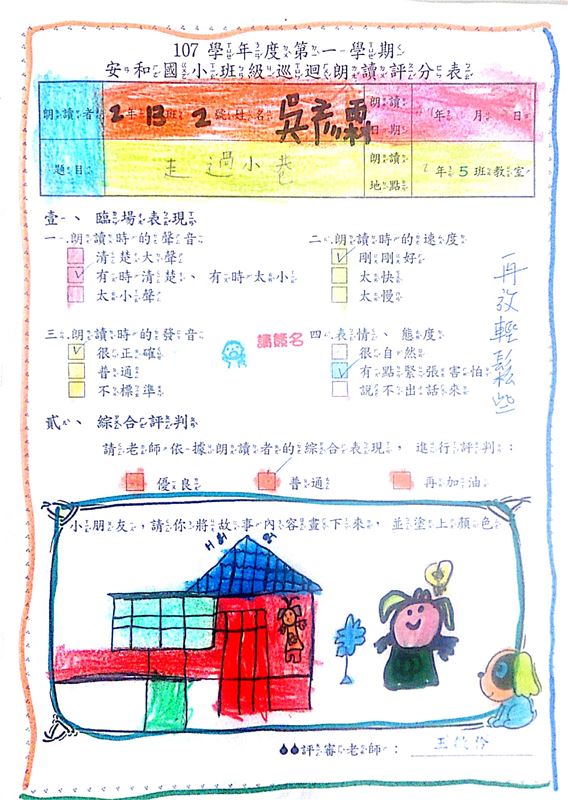 107 學年度第一學期
安和國小班級巡迴朗讀評分表
朗讀者 2年13班2號姓名 吳彥霖 朗讀日期 年 月 日
題目 走過小巷 朗讀地點 年5班教室
壹、臨場表現
一.朗讀時的聲音
清楚大聲
有時清楚、有時太小
太小聲
二.朗讀時的速度
剛剛好
太快
太慢
三.朗讀時的發音
很正確
普通
不標準
請簽名
四.表情、態度
很自然
有點緊張害怕
說不出話來
再放輕鬆些
貳、綜合評判
請老師依據朗讀者的綜合表現,進行評判:
優良 普通 再加油
小朋友,請你將故事內容畫下來,並塗上顏色
評審老師: